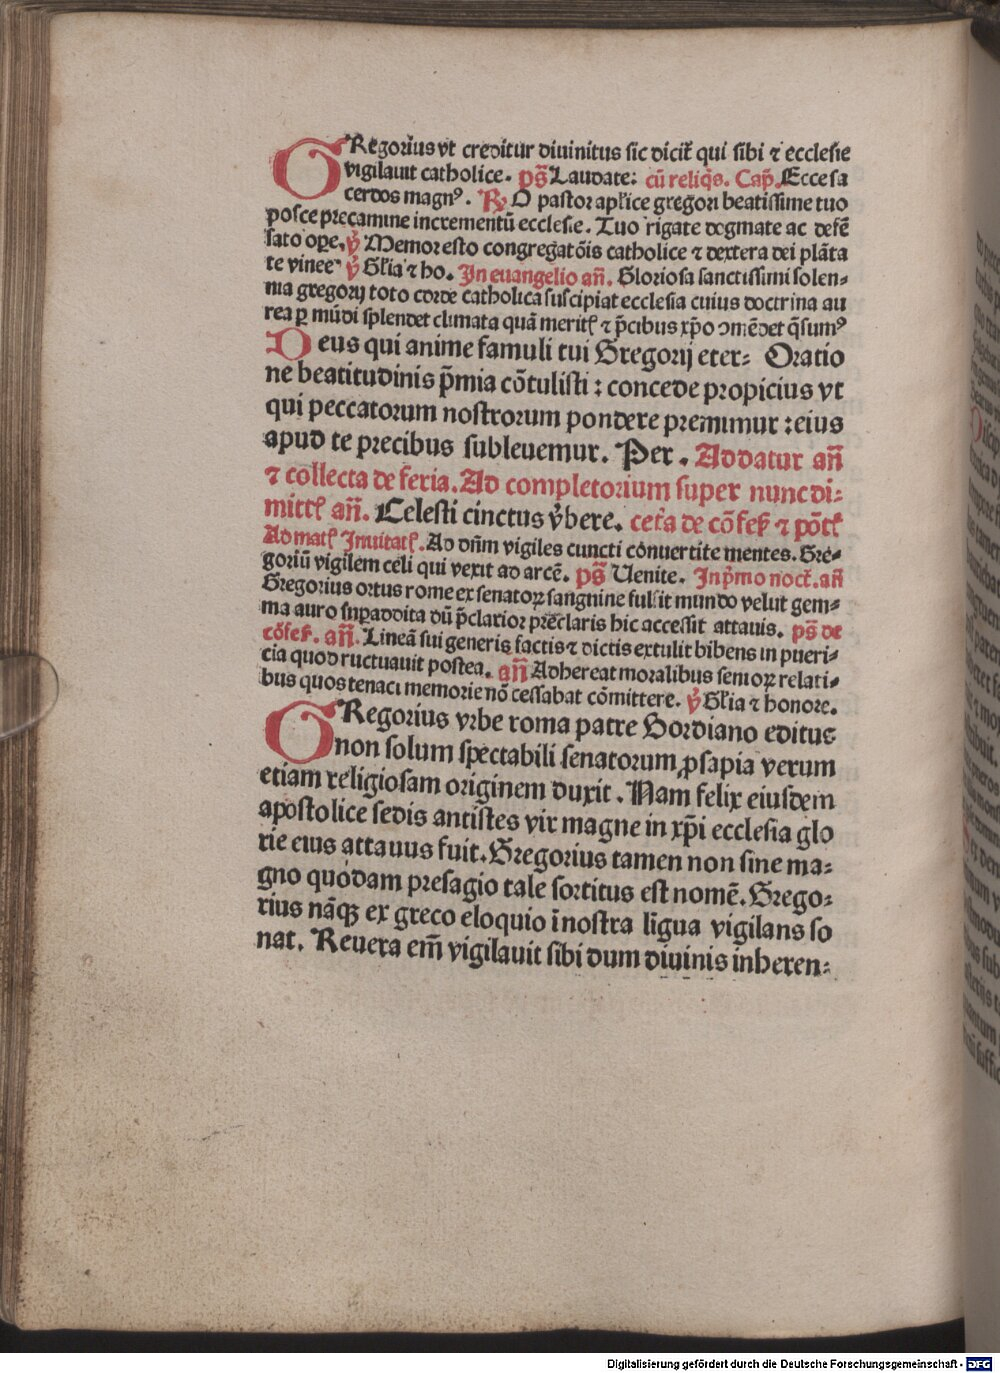 GRegorius vt creditur diuinitus sic dicit̃ qui sibi ⁊ ecclesie
vigilauit catholice. ps̃ Laudate: cũ reliq̃s. Cap̃. Ecce sa
cerdos magnꝰ. ℟ O pastor apl̃ice gregori beatissime tuo
posce precamine incrementũ ecclesie. Tuo rigate dogmate ac defẽ
sato ope. ℣ Memor esto congregatõis catholice ⁊ dextera dei plãta
te vinee ℣ Gl̃ia ⁊ ho. In euangelio añ. Gloriosa sanctissimi solen⸗
nia gregorij toto corde catholica suscipiat ecclesia cuius doctrina au
rea ꝑ mũdi splendet climata quã meritꝭ ⁊ p̃cibus xp̃o ↄmẽdet q̃sumꝰ
Deus qui anime famuli tui Gregorij eter⸗ Oratio
ne beatitudinis p̃mia cõtulisti : concede propicius vt
qui peccatorum nostrorum pondere premimur : eius
apud te precibus subleuemur. Per. Addatur añ
⁊ collecta de feria. Ad completorium super nunc di⸗
mittꝭ añ. Celesti cinctus v̾bere. cet̃a de cõfeſ̃ ⁊ põtꝭ
Ad matꝭ Inuitatꝭ. Ad dñm vigiles cuncti conuertite mentes. Gre⸗
goriũ vigilem celi qui vexit ad arcẽ. ps̃ Uenite. In p̃mo noct̃. añ
Gregorius ortus rome ex senatoꝝ sangnine fulsit mundo velut gem⸗
ma auro suꝑaddita dũ p̃clarior preclaris hic accessit attauis. ps̃ de
cõfeſ̃. añ. Lineã sui generis factis ⁊ dictis extulit bibens in pueri⸗
cia quod ructuauit postea. añ Adhereat moralibus senioꝝ relati⸗
bus quos tenaci memorie nõ cessabat cõmittere. ℣ Gl̃ia ⁊ honore.
GRegorius vrbe roma patre Gordiano editus
non solum spectabili senatorum ꝓsapia verum
etiam religiosam originem duxit. Nam felix eiusdem
apostolice sedis antistes vir magne in xp̃i ecclesia glo
rie eius attauus fuit. Gregorius tamen non sine ma⸗
gno quodam presagio tale sortitus est nomẽ. Grego⸗
rius nãqꝫ ex greco eloquio ĩ nostra ligua vigilans so
nat. Reuera em̃ vigilauit sibi dum diuinis inheren⸗
Digitalisierung gefördert durch die Deutsche Forschungsgemeinschaft - DFG